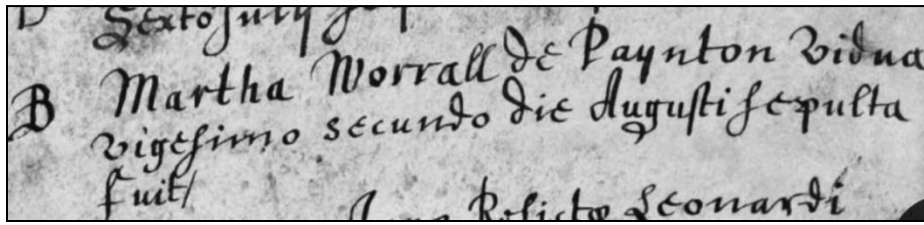 Sexto Julij
B Martha Worrall de Paynton vidua
vigesimo secundo die Augusti sepulta
fuit/
Relicta Leonardi